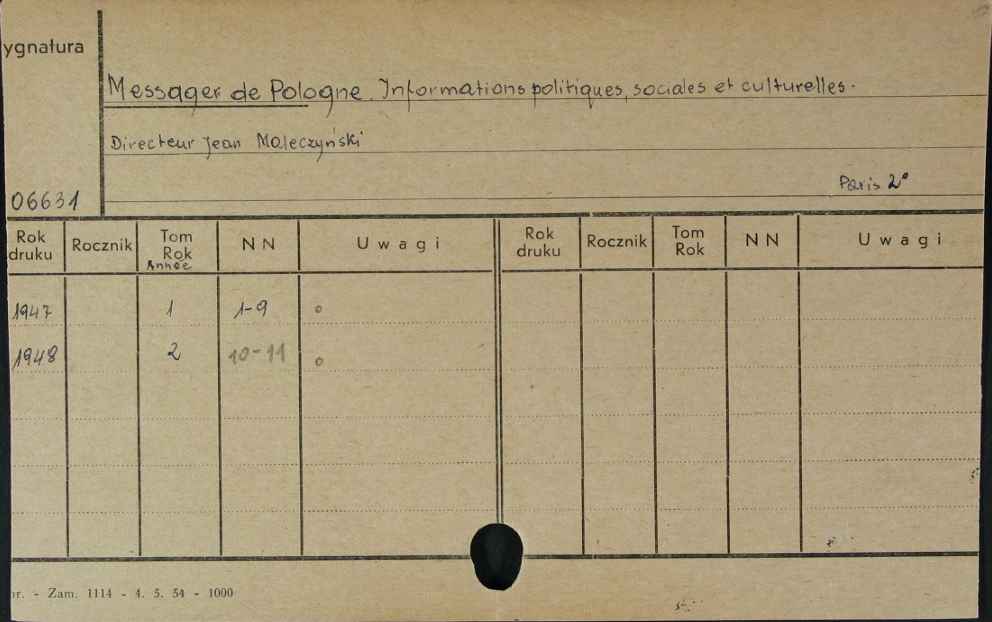 ygnatura
Messager de Pologne. Informations politiques, sociales et culturelles.
Directeur Jean Maleczyński
Paris 2°
06631
Rok druku Rocznik Tom Rok Année NN Uwagi Rok druku Rocznik Tom Rok NN Uwagi
1947 1 1-9 o
1948 2 10-11 o
r. - Zam. 1114 - 4. 5. 54 - 1000